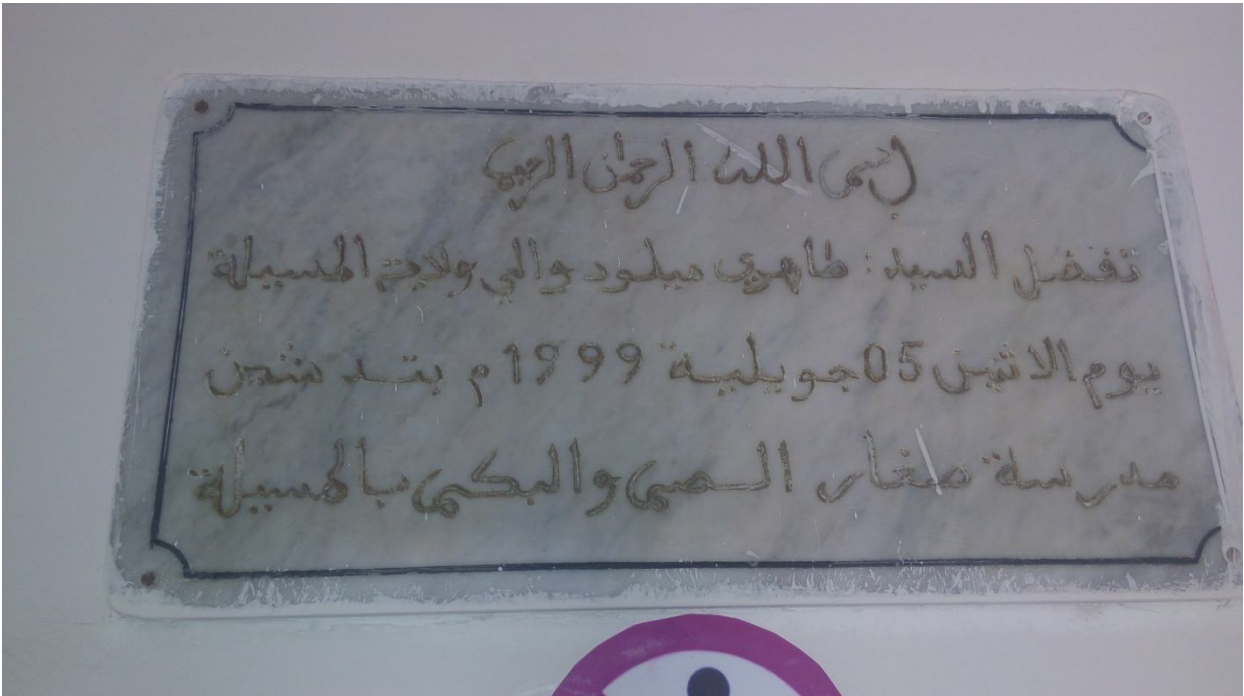 بسم الله الرحمان الرحيم
تفضل السيد : طاهري ميلود والي ولاية المسيلة
يوم الاثنين 05 جويلية 1999 م بتدشين
مدرسة صغار الصم والبكم بالمسيلة